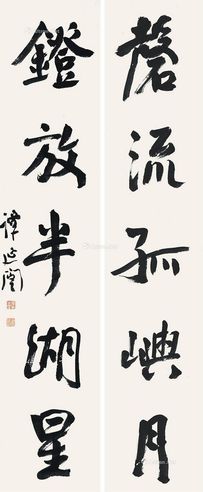 磬流孤嶼月
鐙放半湖星
譚延闓